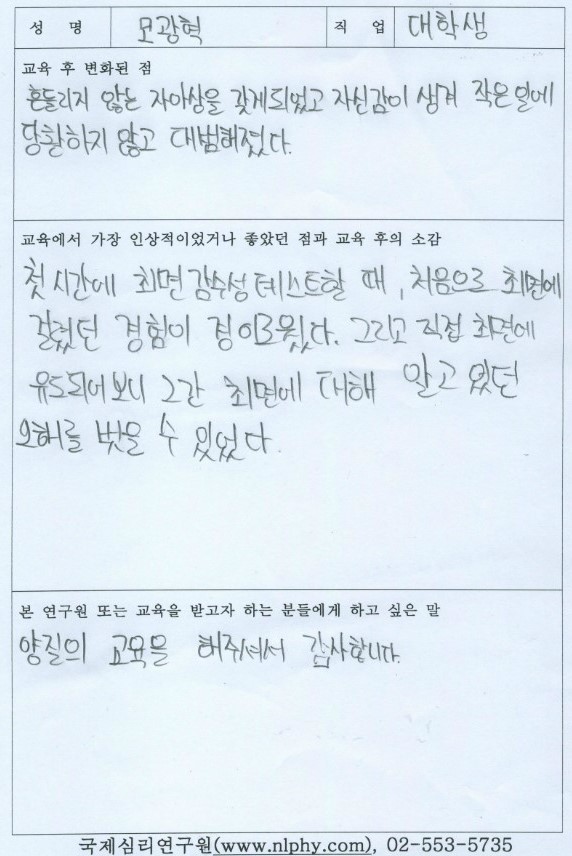 성 명 모광혁 직 업 대학생
교육 후 변화된 점
흔들리지 않는 자아상을 갖게되었고 자신감이 생겨 작은일에
당황하지 않고 대범해졌다.
교육에서 가장 인상적이었거나 좋았던 점과 교육 후의 소감
첫 시간에 최면감수성 테스트할 때, 처음으로 최면에
걸렸던 경험이 경이로웠다. 그리고 직접 최면에
유도되어보니 그간 최면에 대해 알고 있던
오해를 벗을 수 있었다.
본 연구원 또는 교육을 받고자 하는 분들에게 하고 싶은 말
양질의 교육을 해주셔서 감사합니다.
국제심리연구원(www.nlphy.com), 02-553-5735